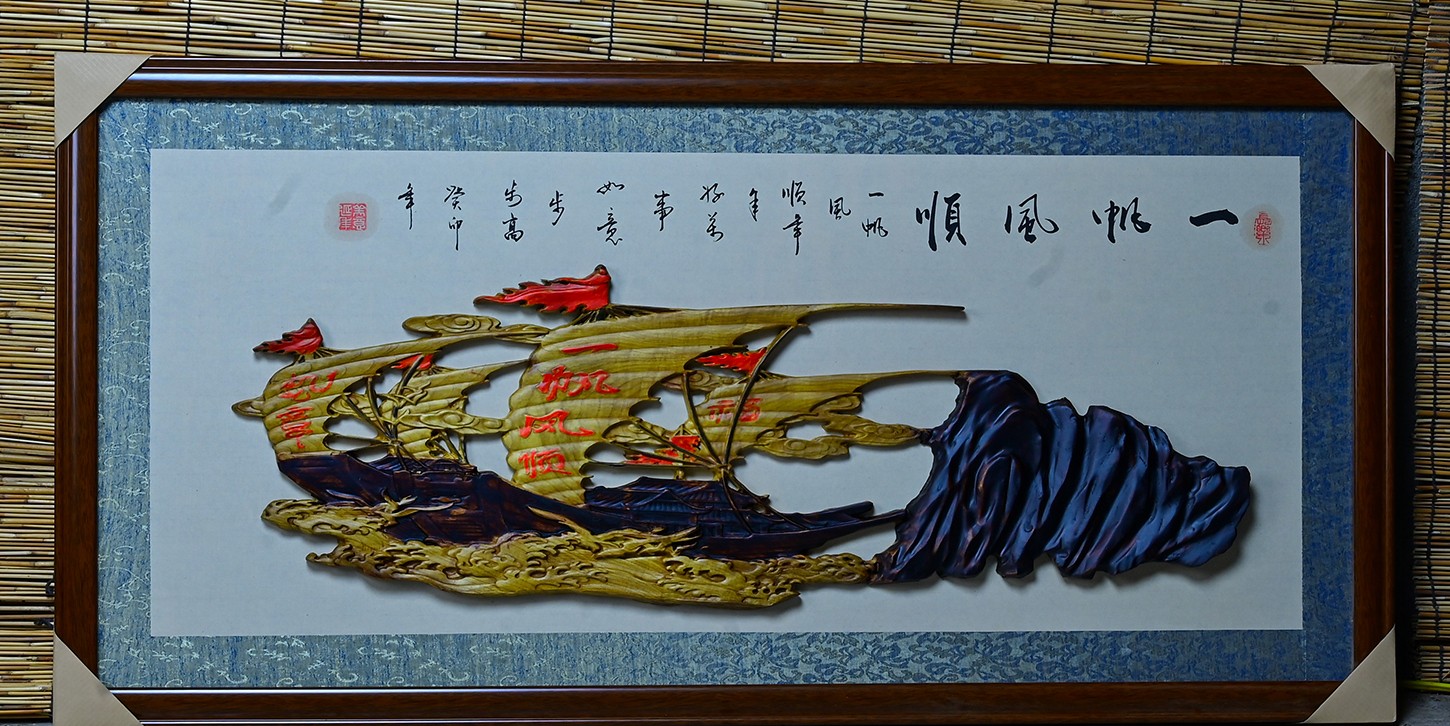 一帆風順
一帆
風
順年
年
好萬
事
如意
步
步高
癸卯
年
一帆风顺
福